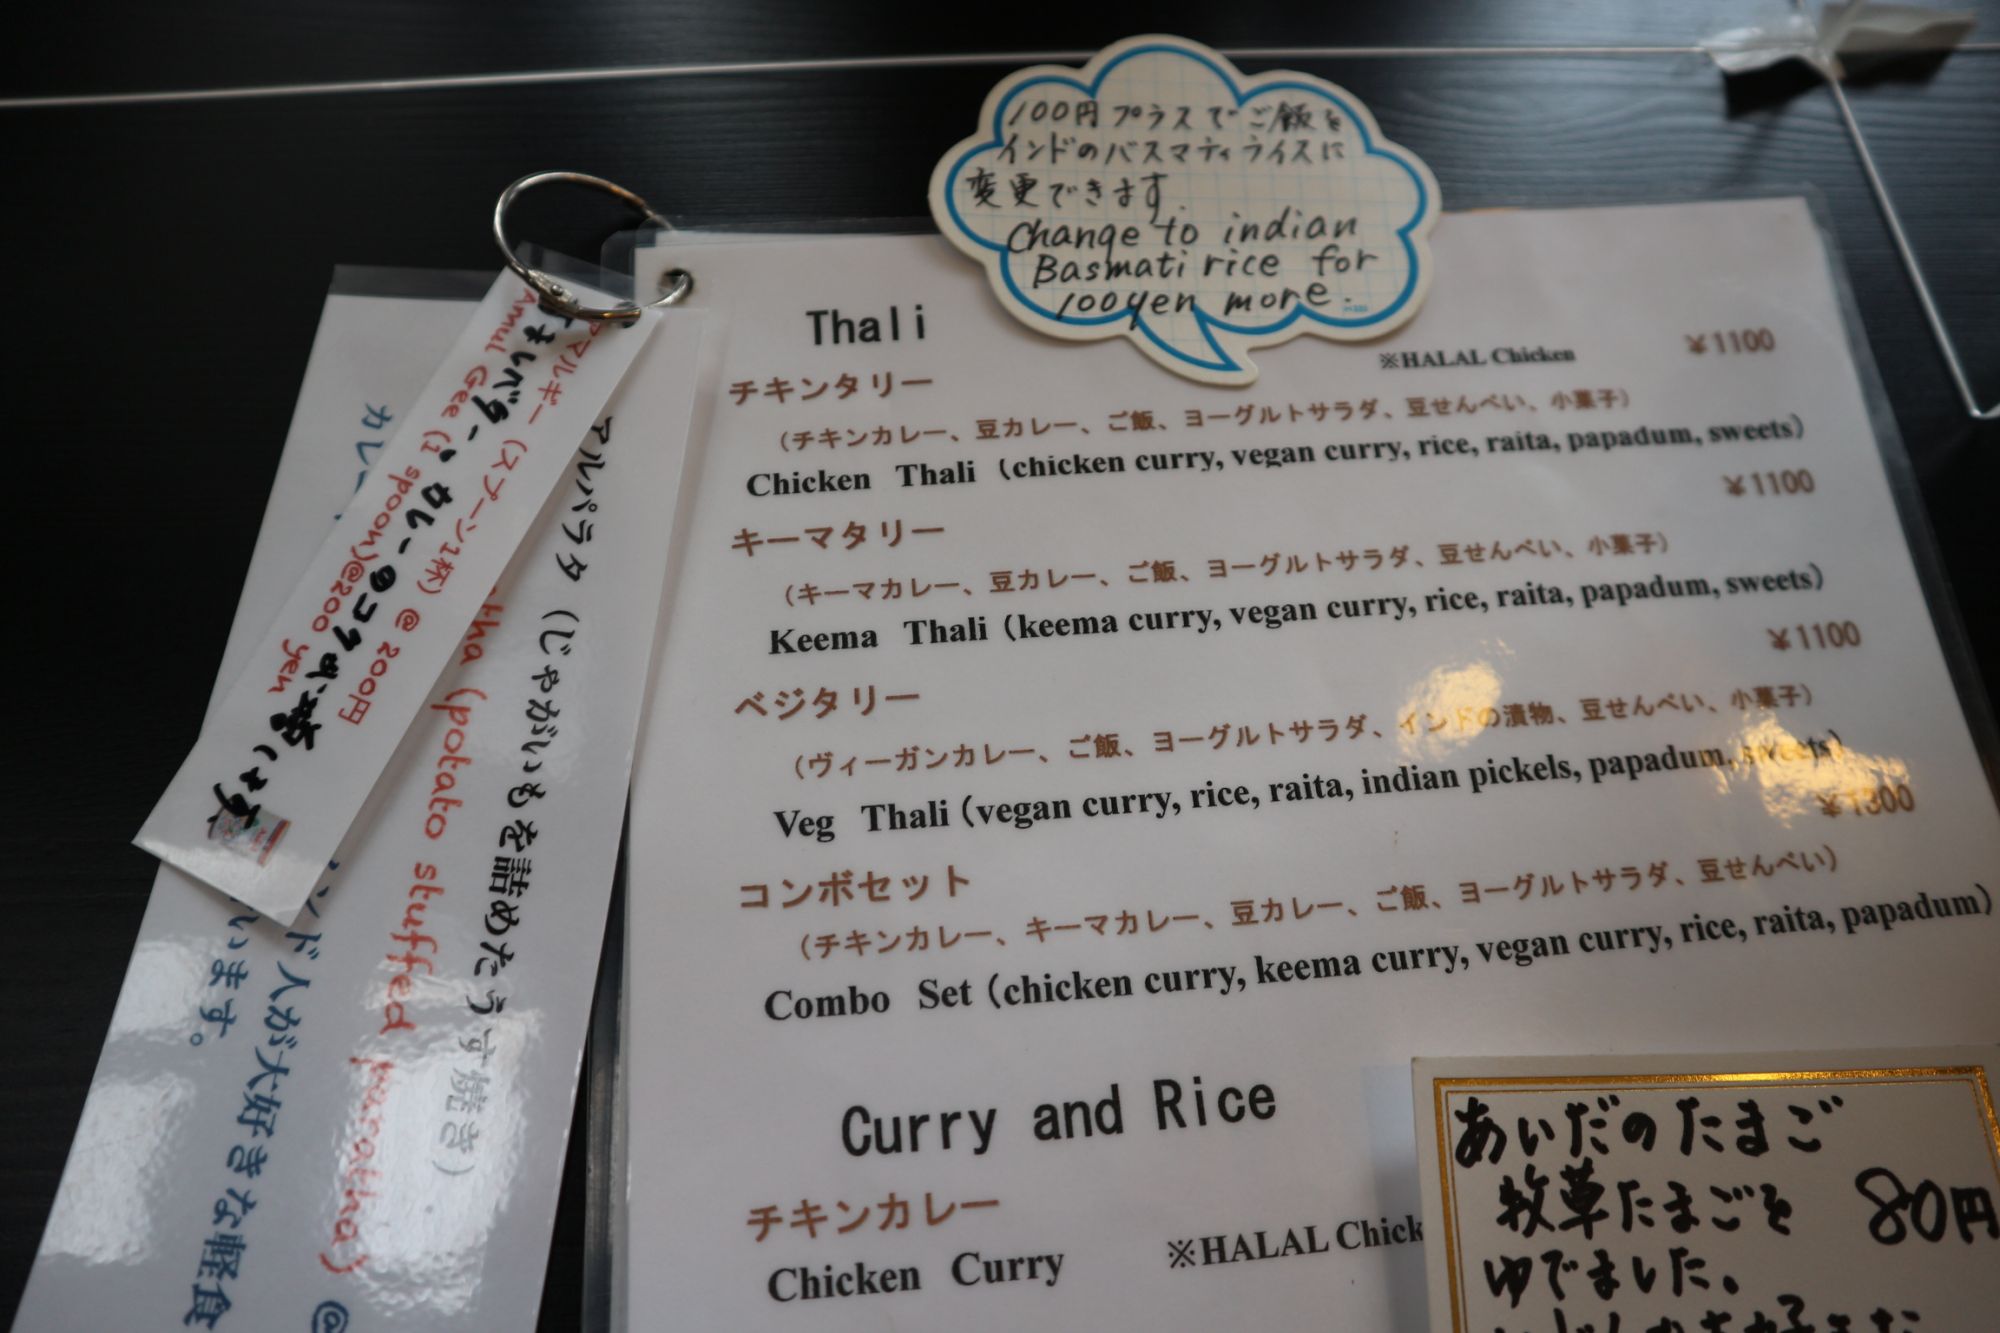 100円プラスでご飯を
インドのバスマティライスに
変更できます.
Change to indian
Basmati rice for
100yen more.
Thali
※HALAL Chicken
¥1100
チキンタリー
(チキンカレー、豆カレー、ご飯、ヨーグルトサラダ、豆せんべい、小菓子)
Chicken Thali (chicken curry, vegan curry, rice, raita, papadum, sweets)
¥1100
キーマタリー
(キーマカレー、豆カレー、ご飯、ヨーグルトサラダ、豆せんべい、小菓子)
Keema Thali (keema curry, vegan curry, rice, raita, papadum, sweets)
¥1100
ベジタリー
(ヴィーガンカレー、ご飯、ヨーグルトサラダ、インドの漬物、豆せんべい、小菓子)
Veg Thali (vegan curry, rice, raita, indian pickels, papadum, sweets)
¥1300
コンボセット
(チキンカレー、キーマカレー、豆カレー、ご飯、ヨーグルトサラダ、豆せんべい)
Combo Set (chicken curry, keema curry, vegan curry, rice, raita, papadum)
Curry and Rice
チキンカレー
Chicken Curry
※HALAL Chick
あいだのたまご
牧草たまごを
ゆでました。
80円
アマルギー (スプーン1杯) @ 200円
Amul Gee (1 spoon)@200 yen
ルパラタ (じゃがいもを詰めたうす焼き)
tha (potato stuffed paratha)
@
カレー
ンド人が大好きな軽食
います。